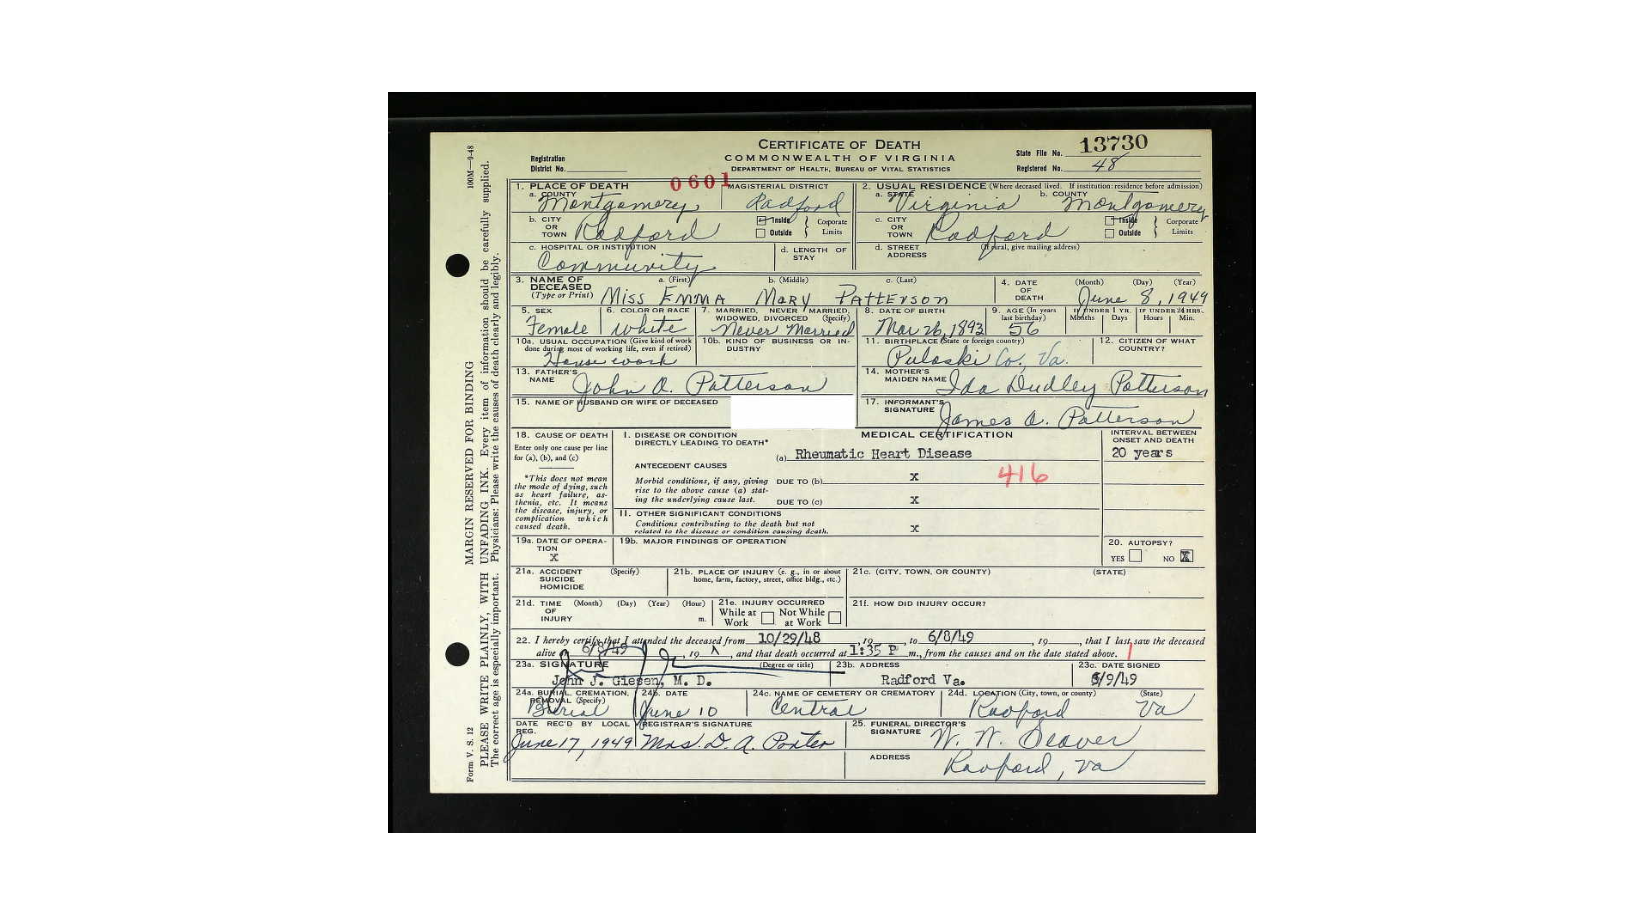 CERTIFICATE OF DEATH
COMMONWEALTH OF VIRGINIA
DEPARTMENT OF HEALTH, BUREAU OF VITAL STATISTICS
Registration District No.
State File No. 13730
Registered No. 48
0601
1. PLACE OF DEATH
a. COUNTY Montgomery
MAGISTERIAL DISTRICT Radford
b. CITY OR TOWN Radford
Inside Outside Corporate Limits
c. HOSPITAL OR INSTITUTION Community
d. LENGTH OF STAY
2. USUAL RESIDENCE (Where deceased lived. If institution: residence before admission)
a. STATE Virginia
b. COUNTY Montgomery
c. CITY OR TOWN Radford
Inside Outside Corporate Limits
d. STREET ADDRESS (If rural, give mailing address)
3. NAME OF DECEASED (Type or Print)
a. (First) b. (Middle) c. (Last)
Miss Emma Mary Patterson
4. DATE OF DEATH (Month) (Day) (Year)
June 8, 1949
5. SEX Female
6. COLOR OR RACE White
7. MARRIED, NEVER MARRIED, WIDOWED, DIVORCED (Specify) Never Married
8. DATE OF BIRTH Mar 26, 1893
9. AGE (In years last birthday) 56
IF UNDER 1 YR. Months Days
IF UNDER 24 HRS. Hours Min.
10a. USUAL OCCUPATION (Give kind of work done during most of working life, even if retired) House work
10b. KIND OF BUSINESS OR INDUSTRY
11. BIRTHPLACE (State or foreign country) Pulaski Co., Va.
12. CITIZEN OF WHAT COUNTRY?
13. FATHER'S NAME John A. Patterson
14. MOTHER'S MAIDEN NAME Ida Dudley Patterson
15. NAME OF HUSBAND OR WIFE OF DECEASED
17. INFORMANT'S SIGNATURE James A. Patterson
18. CAUSE OF DEATH
Enter only one cause per line for (a), (b), and (c)
*This does not mean the mode of dying, such as heart failure, asthenia, etc. It means the disease, injury, or complication which caused death.
MEDICAL CERTIFICATION
INTERVAL BETWEEN ONSET AND DEATH
I. DISEASE OR CONDITION DIRECTLY LEADING TO DEATH*
(a) Rheumatic Heart Disease 20 years
416
ANTECEDENT CAUSES
Morbid conditions, if any, giving rise to the above cause (a) stating the underlying cause last.
DUE TO (b) X
DUE TO (c) X
II. OTHER SIGNIFICANT CONDITIONS
Conditions contributing to the death but not related to the disease or condition causing death. X
19a. DATE OF OPERATION X
19b. MAJOR FINDINGS OF OPERATION
20. AUTOPSY?
YES NO X
21a. ACCIDENT SUICIDE HOMICIDE (Specify)
21b. PLACE OF INJURY (e. g., in or about home, farm, factory, street, office bldg., etc.)
21c. (CITY, TOWN, OR COUNTY) (STATE)
21d. TIME OF INJURY (Month) (Day) (Year) (Hour) m.
21e. INJURY OCCURRED
While at Work Not While at Work
21f. HOW DID INJURY OCCUR?
22. I hereby certify that I attended the deceased from 10/29/48, 19 , to 6/8/49, 19 , that I last saw the deceased
alive on 6/8/49, 19 , and that death occurred at 1:35 P m., from the causes and on the date stated above.
23a. SIGNATURE (Degree or title)
John J. Giesen, M. D.
23b. ADDRESS Radford Va.
23c. DATE SIGNED 6/9/49
24a. BURIAL, CREMATION, REMOVAL (Specify) Burial
24b. DATE June 10
24c. NAME OF CEMETERY OR CREMATORY Central
24d. LOCATION (City, town, or county) (State) Radford Va
DATE REC'D BY LOCAL REG. June 17, 1949
REGISTRAR'S SIGNATURE Mrs. D. A. Porter
25. FUNERAL DIRECTOR'S SIGNATURE W. W. Seaver
ADDRESS Radford, Va
100M—9-48
MARGIN RESERVED FOR BINDING
PLEASE WRITE PLAINLY, WITH UNFADING INK. Every item of information should be carefully supplied.
The correct age is especially important. Physicians: Please write the causes of death clearly and legibly.
Form V. S. 12